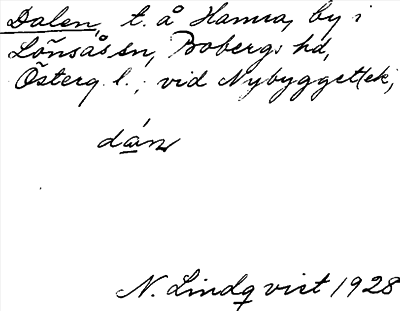 Dalen, t. å Hamra, by i
Lönsås sn, Bobergs hd,
Österg. l.; vid Nybygget(ek,
dán
N. Lindqvist 1928